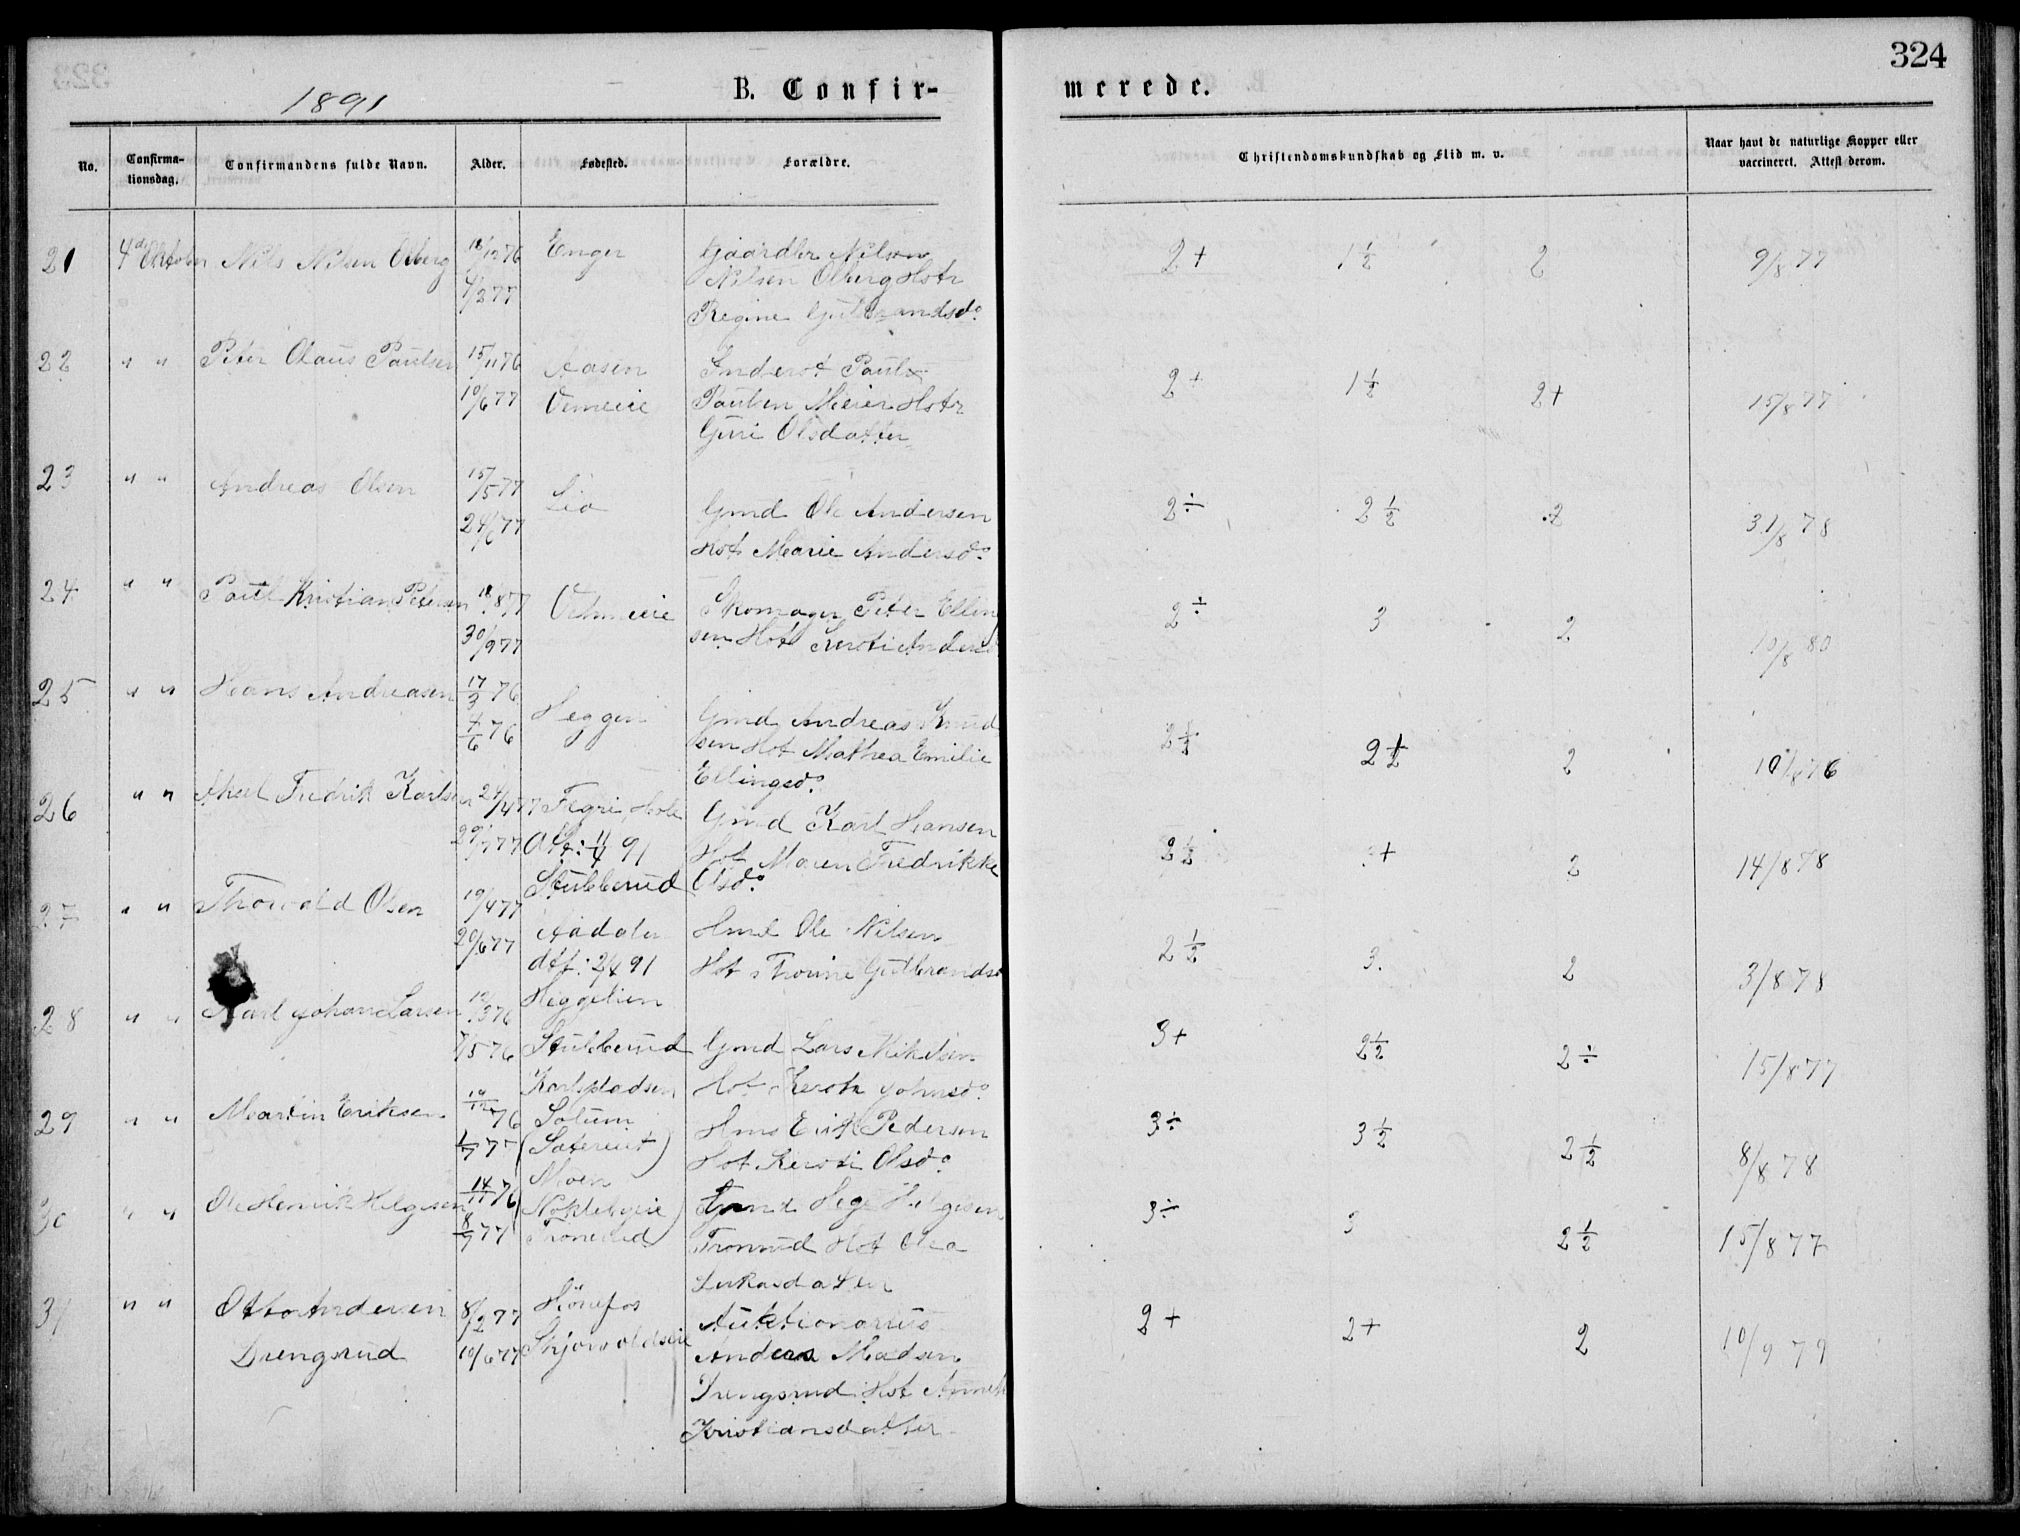 324
1891
B. Confir-
merede.
No.
Confirma-
tionsdag.
Confirmandens fulde Navn.
Alder.
Fødested.
Forældre.
Christendomskundskab og Flid m. v.
Naar havt de naturlige Kopper eller
vaccineret. Attest derom.
21 4d Oktober Nils Nilsen Olberg 18/12 76 Enger Gaardbr Nils
4/2 77 Nilsen Olberg Hstr
Regine Gulbrandsdo
2+ 1½ 2 9/8 77
22 " " Peter Olaus Paulsen 15/11 76 Aasen Inderst Paul
10/6 77 Paulsen Meier Hstr
Guri Olsdatter
2+ 1½ 2+ 15/8 77
23 " " Andreas Olsen 15/5 77 Lia Gmd Ole Andersen
24/6 77 Hst Marie Andersdo
2÷ 2½ 2 31/8 78
24 " " Paul Kristian Petersen 18/8 77 Skomager Peter Elling
30/9 77 sen Hst Kersti Andersd
2÷ 3 2 10/8 80
25 " " Hans Andreasen 17/3 76 Heggen Gmd Andreas Knud
4/6 76 sen Hst Mathea Emilie
Ellingsdo
2½ 2½ 2 10/8 76
26 " " Axel Fredrik Karlsen 24/4 77 Fegri, Hole Gmd Karl Hansen
29/7 77 91 Hst Maren Fredrikke
Olsdo
2½ 2 14/8 78
27 " " Thorvald Olsen 19/4 77 Stubberud
20/6 77 Aadalen Hmd Ole Nilsen
dtt: 2/4 91 Hst Thorine Gulbrandsd
2½ 3 2 3/8 78
28 " " Karl Johan Larsen 12/3 76 Heggelien
7/5 76 Stubberud Gmd Lars Mikelsen
Karlspladsen Hst Kersti Johnsdo
3+ 2½ 2÷ 15/8 77
29 " " Martin Eriksen 19/12 76 Solum Hms Erik Pedersen
77 Hst Kersti Olsdo
3÷ 3½ 2½ 8/8 78
30 " " Ole Henrik Helgesen 14/11 76 Moen
Gmd Helge Helgesen
8/7 77 Tronerud Tronrud Hst Olea
Lukasdatter
3÷ 3 2½ 15/8 77
31 " " Otto Andersen 8/2 77 Hönefos Auktionarius
Drengsrud 10/6 77 Skjørvoldseie Anders Madsen
Drengsrud Hst Anne
Kristiansdatter
2+ 2+ 2 10/9 79